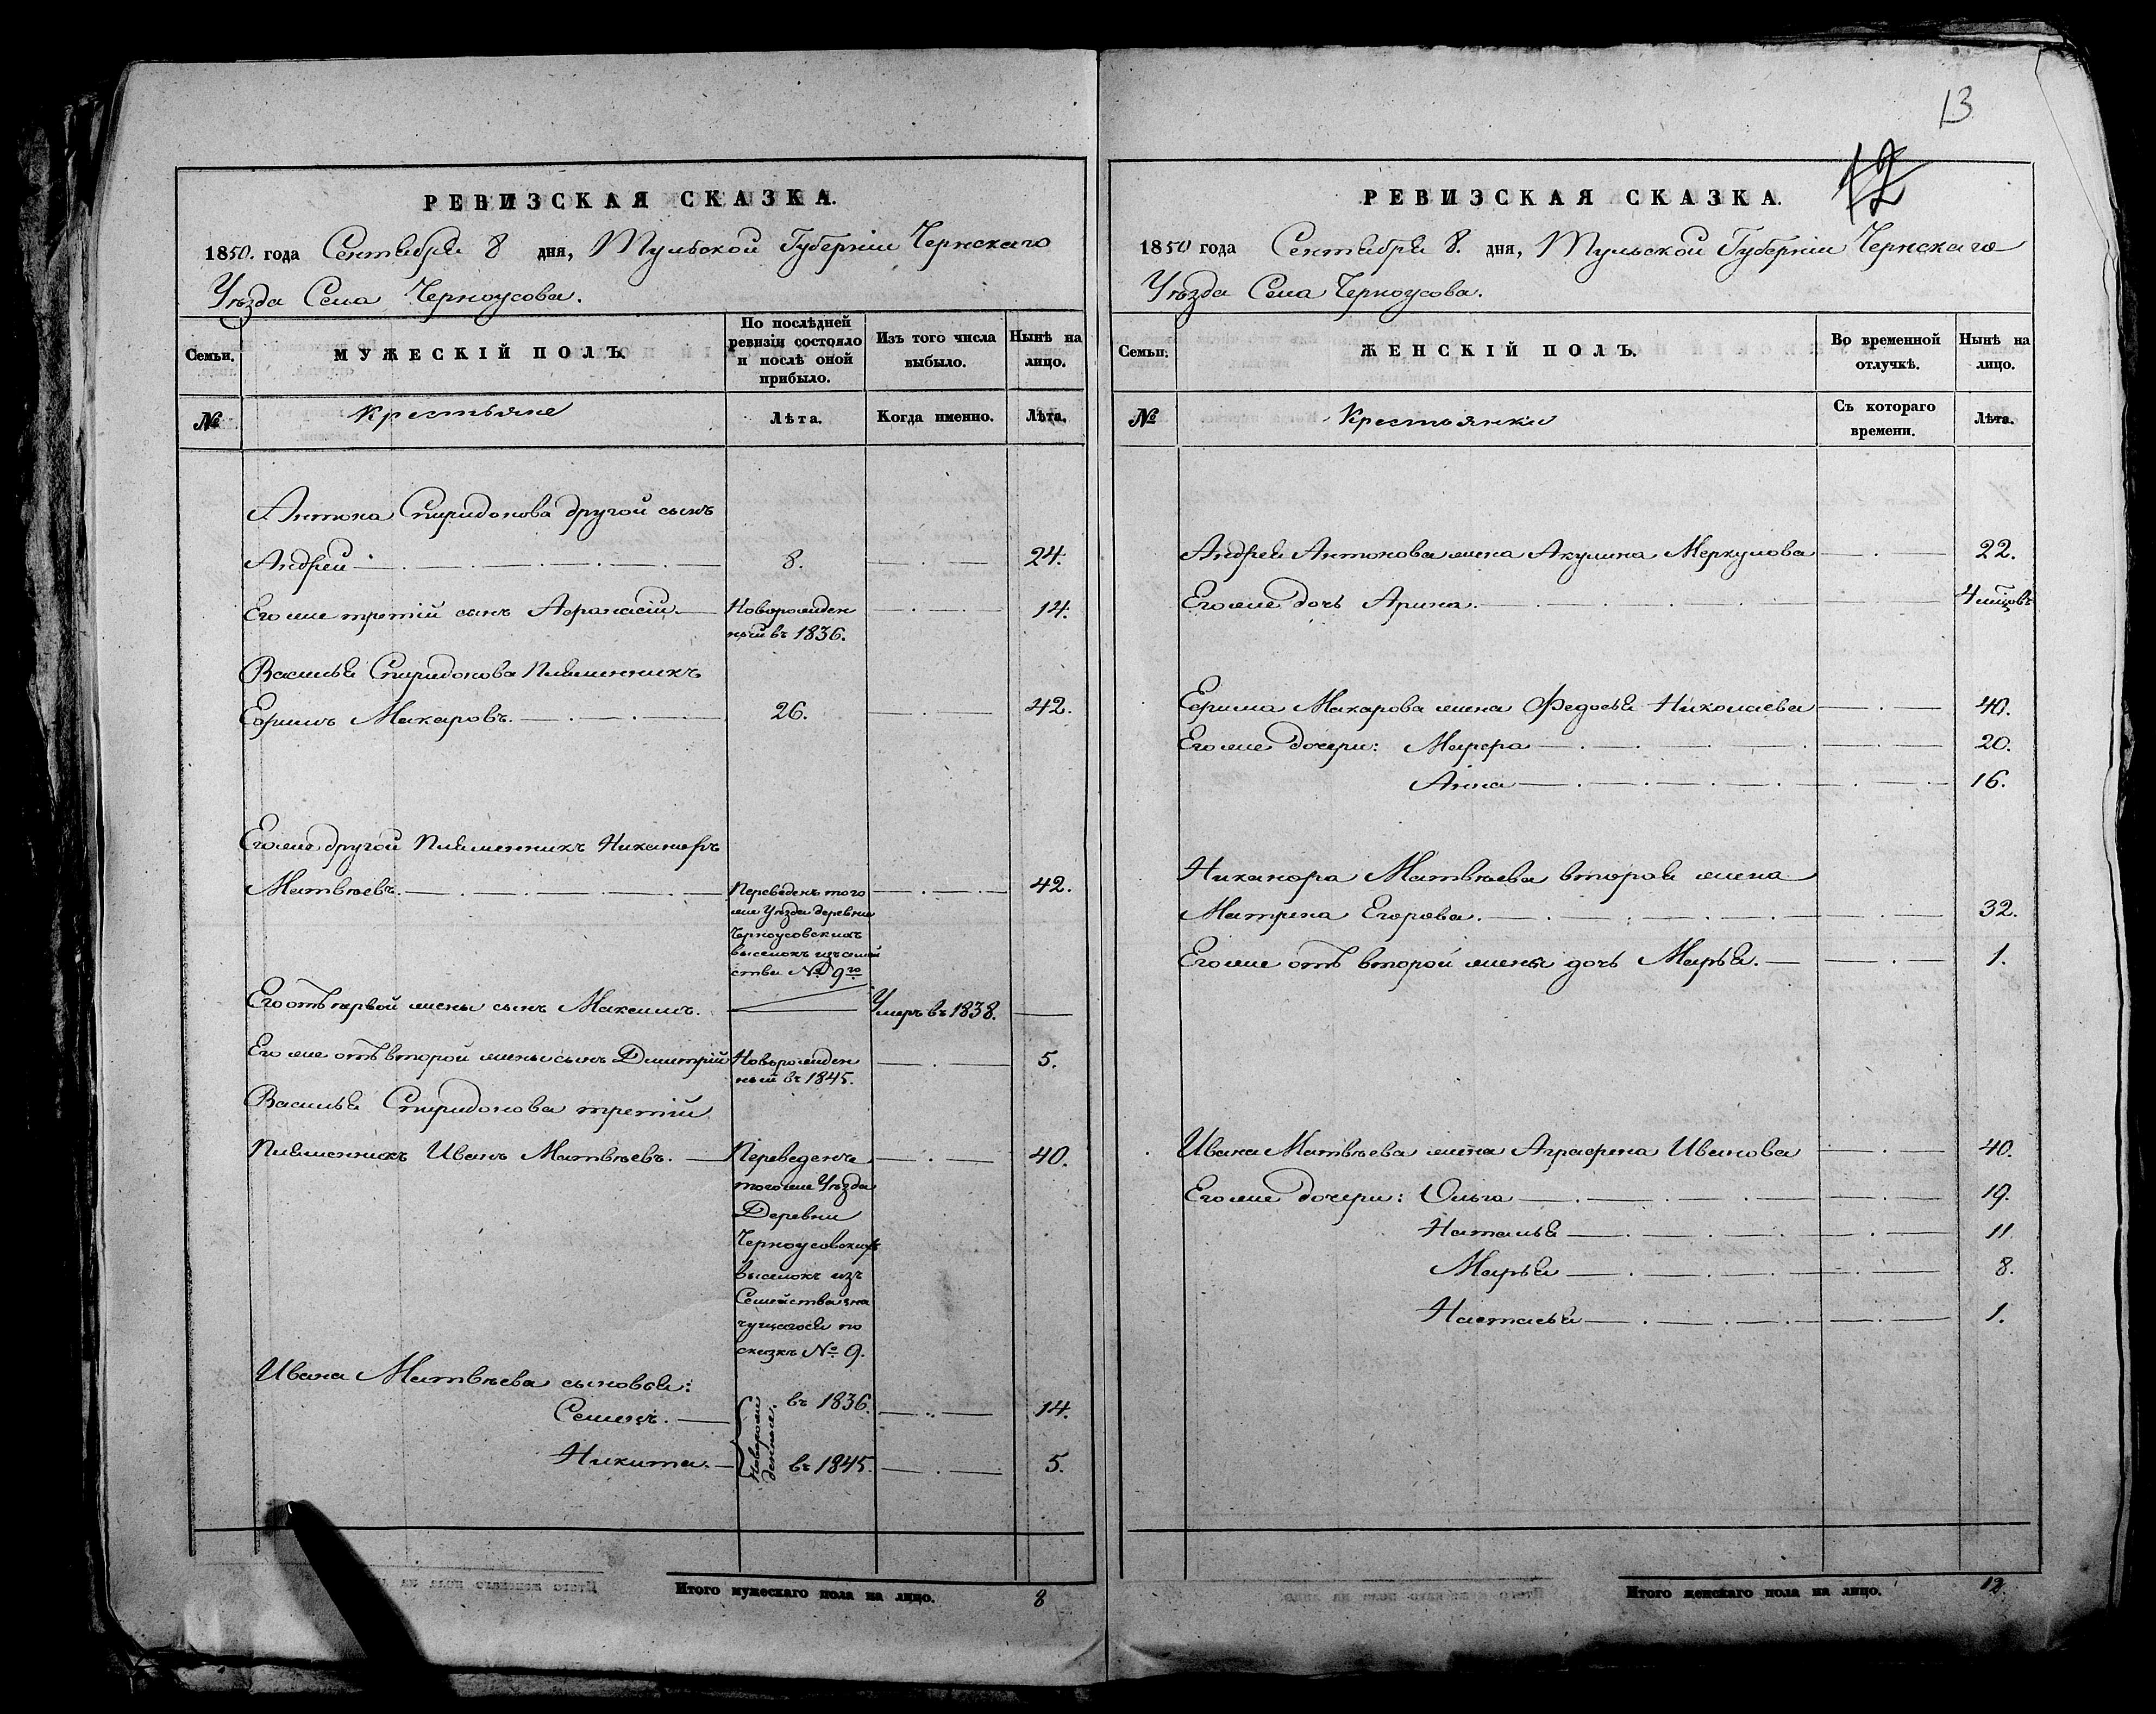 РЕВИЗСКАЯ СКАЗКА.
1850. года Сентября 8 дня, Тульской Губерніи Чернскаго
Уѣзда Села Черноусова.
Семьи.
МУЖЕСКІЙ ПОЛЪ.
По послѣдней
ревизіи состояло
и послѣ оной
прибыло.
Изъ того числа
выбыло.
Нынѣ на
лицо.
№
Крестьяне
Лѣта.
Когда именно.
Лѣта.
Антона Спиридонова другой сынъ
Андрей 8. 24.
Его же третій сынъ Афанасій. Новорожден 14.
ный въ 1836.
Василья Спиридонова Племянникъ
Ефимъ Макаровъ. 26. 42.
Его же другой Племянникъ Никаноръ
Матвѣевъ. Переведенъ того 42.
же Уѣзда деревни
Черноусовскихъ
выселокъ изъ семей
ства № 9го
Его отъ первой жены сынъ Максимъ. Умеръ въ 1838.
Его же отъ второй жены сынъ Дмитрій Новорожден 5.
ный въ 1845.
Василья Спиридонова третій
Племянникъ Иванъ Матвѣевъ. Переведенъ 40.
того же Уѣзда
Деревни
Черноусовскихъ
выселокъ изъ
Семейства зна
чущагося по
сказкѣ № 9.
Ивана Матвѣева сыновья:
Семенъ. Новорож въ 1836. 14.
Никита. денные. въ 1845. 5.
Итого мужескаго пола на лицо. 8
13
12
РЕВИЗСКАЯ СКАЗКА.
1850 года Сентября 8. дня, Тульской Губерніи Чернскаго
Уѣзда Села Черноусова.
Семьи.
ЖЕНСКІЙ ПОЛЪ.
Во временной
отлучкѣ.
Нынѣ на
лицо.
№
Крестьянки
Съ котораго
времени.
Лѣта.
Андрея Антонова жена Акулина Меркулова 22.
Его же дочь Арина. 4 мцовъ
Ефима Макарова жена Федосья Николаева 40.
Его же дочери: Марфа 20.
Анна 16.
Никанора Матвѣева вторая жена
Матрена Егорова. 32.
Его же отъ второй жены дочь Марья. 1.
Ивана Матвѣева жена Аграфена Иванова 40.
Его же дочери: Ольга 19.
Наталья 11
Марья 8.
Настасья 1.
Итого женскаго пола на лицо. 12.